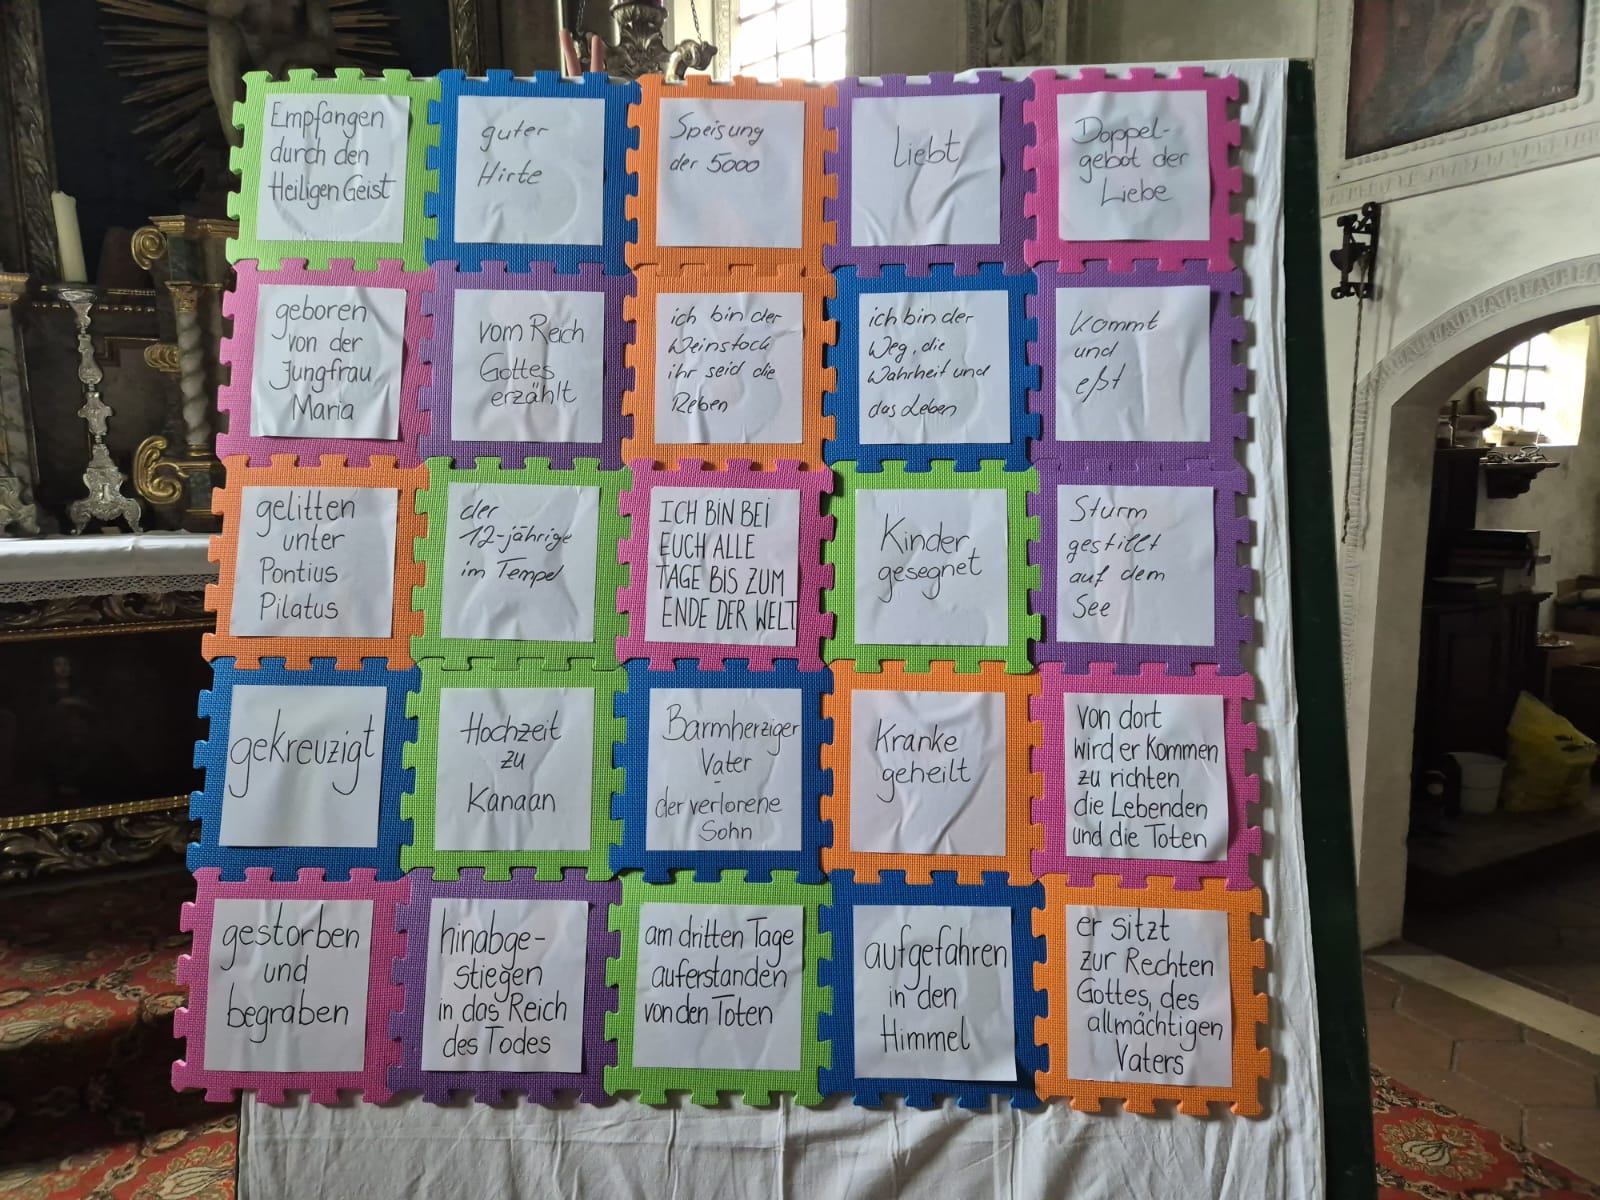 Empfangen
durch den
Heiligen Geist
guter
Hirte
Speisung
der 5000
Liebt
Doppel-
gebot der
Liebe
geboren
von der
Jungfrau
Maria
vom Reich
Gottes
erzählt
ich bin der
Weinstock
ihr seid die
Reben
ich bin der
Weg, die
Wahrheit und
das Leben
Kommt
und
eßt
gelitten
unter
Pontius
Pilatus
der
12-jährige
im Tempel
ICH BIN BEI
EUCH ALLE
TAGE BIS ZUM
ENDE DER WELT
Kinder
gesegnet
Sturm
gestillt
auf dem
See
gekreuzigt
Hochzeit
zu
Kanaan
Barmherziger
Vater
-
der verlorene
Sohn
Kranke
geheilt
von dort
wird er Kommen
zu richten
die Lebenden
und die Toten
gestorben
und
begraben
hinabge-
stiegen
in das Reich
des Todes
am dritten Tage
auferstanden
von den Toten
aufgefahren
in den
Himmel
er sitzt
zur Rechten
Gottes, des
allmächtigen
Vaters